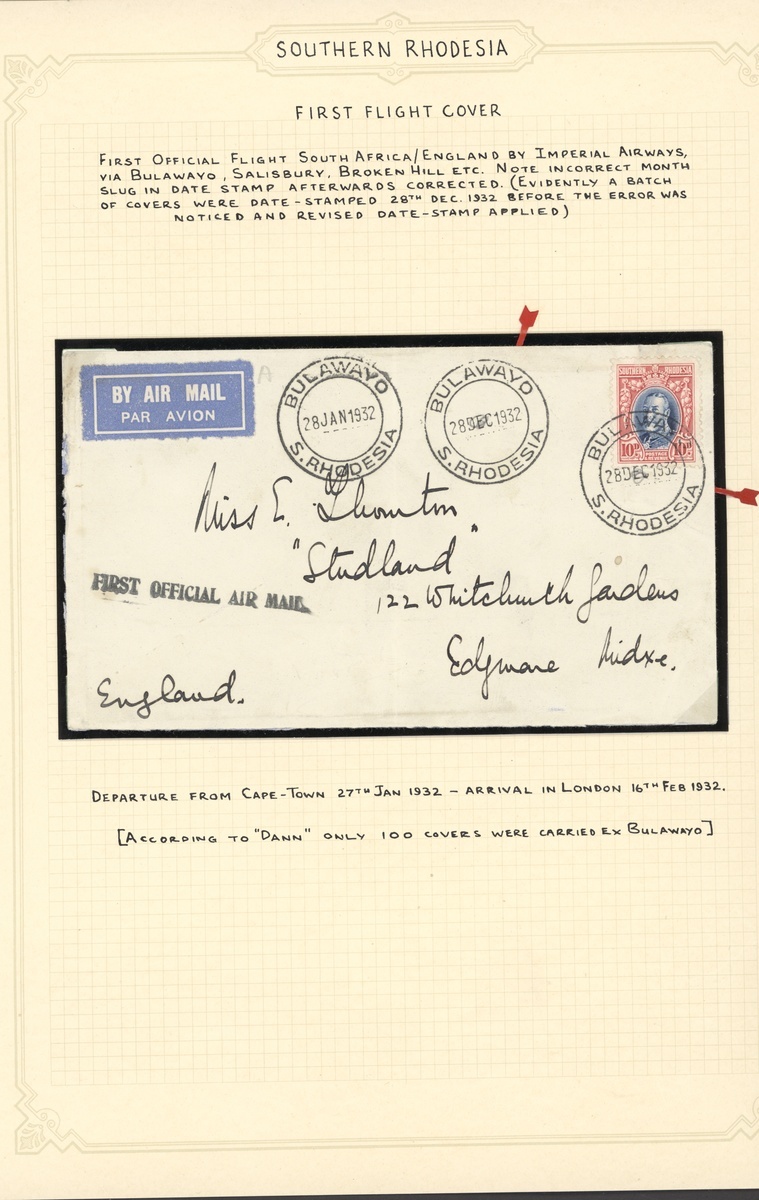 SOUTHERN RHODESIA
FIRST FLIGHT COVER
FIRST OFFICIAL FLIGHT SOUTH AFRICA/ENGLAND BY IMPERIAL AIRWAYS,
VIA BULAWAYO, SALISBURY, BROKEN HILL ETC. NOTE INCORRECT MONTH
SLUG IN DATE STAMP AFTERWARDS CORRECTED. (EVIDENTLY A BATCH
OF COVERS WERE DATE-STAMPED 28TH DEC. 1932 BEFORE THE ERROR WAS
NOTICED AND REVISED DATE-STAMP APPLIED)
BY AIR MAIL
PAR AVION
BULAWAYO
28 JAN 1932
S. RHODESIA
BULAWAYO
28 DEC 1932
S. RHODESIA
SOUTHERN RHODESIA
10D POSTAGE 10D
BULAWAYO
28 DEC 1932
S. RHODESIA
Miss E. Thornton
"Studland"
FIRST OFFICIAL AIR MAIL
122 Whitchurch Gardens
Edgware Midx.
England.
DEPARTURE FROM CAPE-TOWN 27TH JAN 1932 – ARRIVAL IN LONDON 16TH FEB 1932.
[ACCORDING TO "DANN" ONLY 100 COVERS WERE CARRIED EX BULAWAYO]